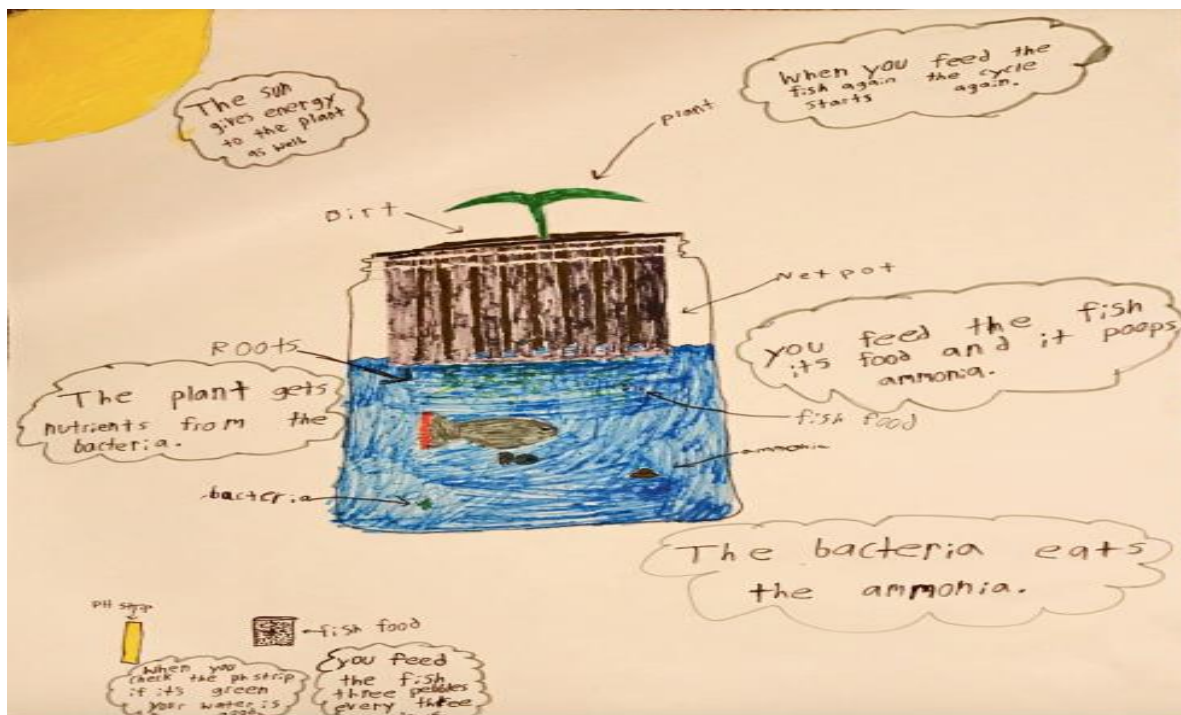 The sun
gives energy
to the plant
as well
When you feed the
fish again the cycle
starts again.
plant
Dirt
Netpot
Roots
you feed the fish
its food and it poops
ammonia.
The plant gets
nutrients from the
bacteria.
fish food
ammonia
bacteria
The bacteria eats
the ammonia.
PH strip
fish food
When you
check the ph strip
if its green
your water is
you feed
the fish
three pebbles
every three